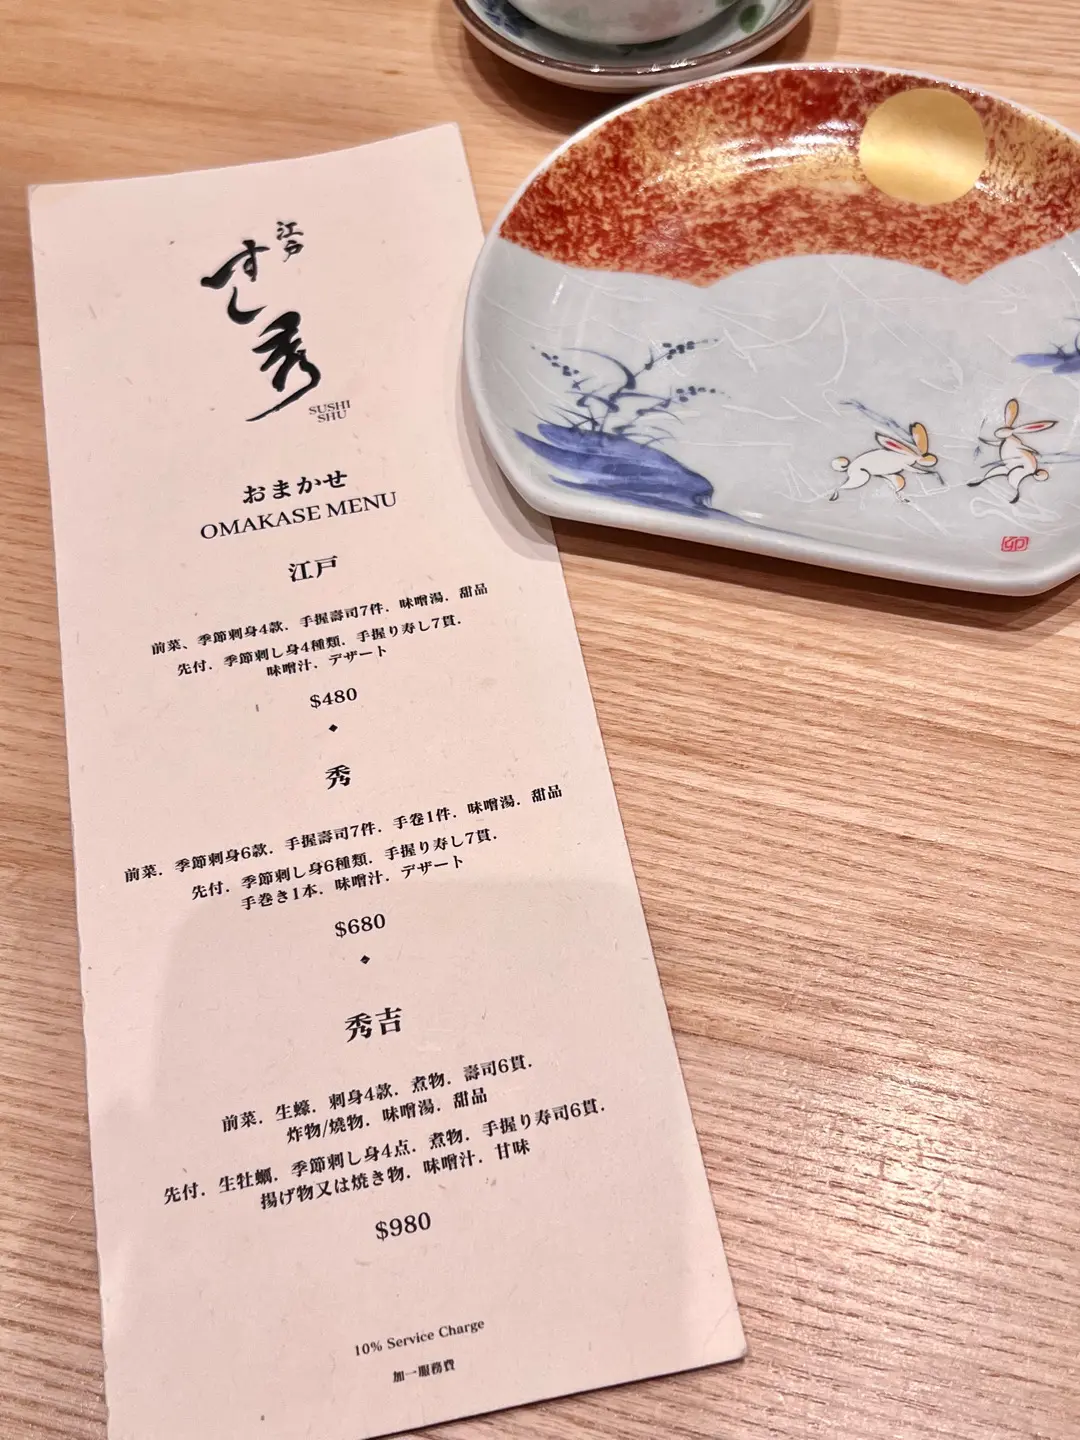 江戸
すし秀
SUSHI
SHU
おまかせ
OMAKASE MENU
江戸
前菜、季節刺身4款．手握壽司7件．味噌湯．甜品
先付．季節刺し身4種類．手握り寿し7貫．
味噌汁．デザート
$480
秀
前菜．季節刺身6款．手握壽司7件．手卷1件．味噌湯．甜品
先付．季節刺し身6種類．手握り寿し7貫．
手巻き1本．味噌汁．デザート
$680
秀吉
前菜．生蠔．刺身4款．煮物．壽司6貫．
炸物/燒物．味噌湯．甜品
先付．生牡蠣．季節刺し身4点．煮物．手握り寿司6貫．
揚げ物又は焼き物．味噌汁．甘味
$980
10% Service Charge
加一服務費